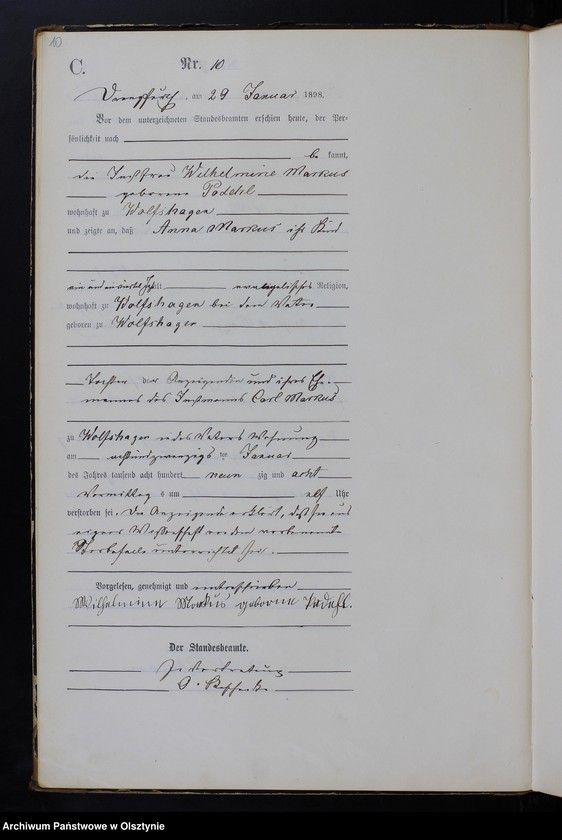 10
C.
Nr. 10
Drengfurth, am 29 Januar 1898.
Vor dem unterzeichneten Standesbeamten erschien heute, der Per-
sönlichkeit nach
be kannt,
die Instfrau Wilhelmine Markus
geborene Podehl
wohnhaft zu Wolfshagen
und zeigte an, daß Anna Markus ihr Kind
ein und ein viertel Jahr alt evangelischer Religion,
wohnhaft zu Wolfshagen bei dem Vater
geboren zu Wolfshagen
Tochter der Anzeigenden und ihres Ehe-
mannes des Instmanns Carl Markus
zu Wolfshagen in des Vaters Wohnung
am achtundzwanzigsten Januar
des Jahres tausend acht hundert neun zig und acht
Vormittags um elf Uhr
verstorben sei. Die Anzeigende erklärt, daß sie aus
eigener Wissenschaft von dem vorbenannten
Sterbefalle unterrichtet sei.
Vorgelesen, genehmigt und unterschrieben
Wilhelmine Markus geborne Podehl.
Der Standesbeamte.
In Vertretung
Archiwum Państwowe w Olsztynie